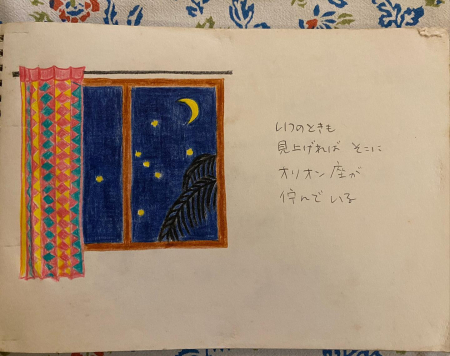 いつのときも
見上げれば そこに
オリオン座が
佇んでいる